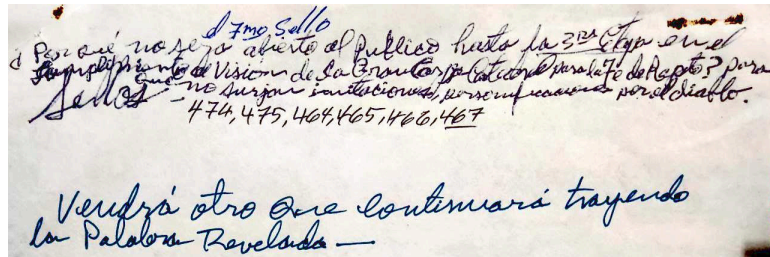 el 7mo Sello
¿Por qué no sera abierto al Publico hasta la 3ra Etapa en el
cumplimiento de Visión de la Gran Carpa Catedral para la Fe de Rapto? para
Sellos que no surjan imitaciones, personificaciones por el diablo.
474, 475, 464, 465, 466, 467
Vendrá otro que continuará trayendo
la Palabra Revelada —